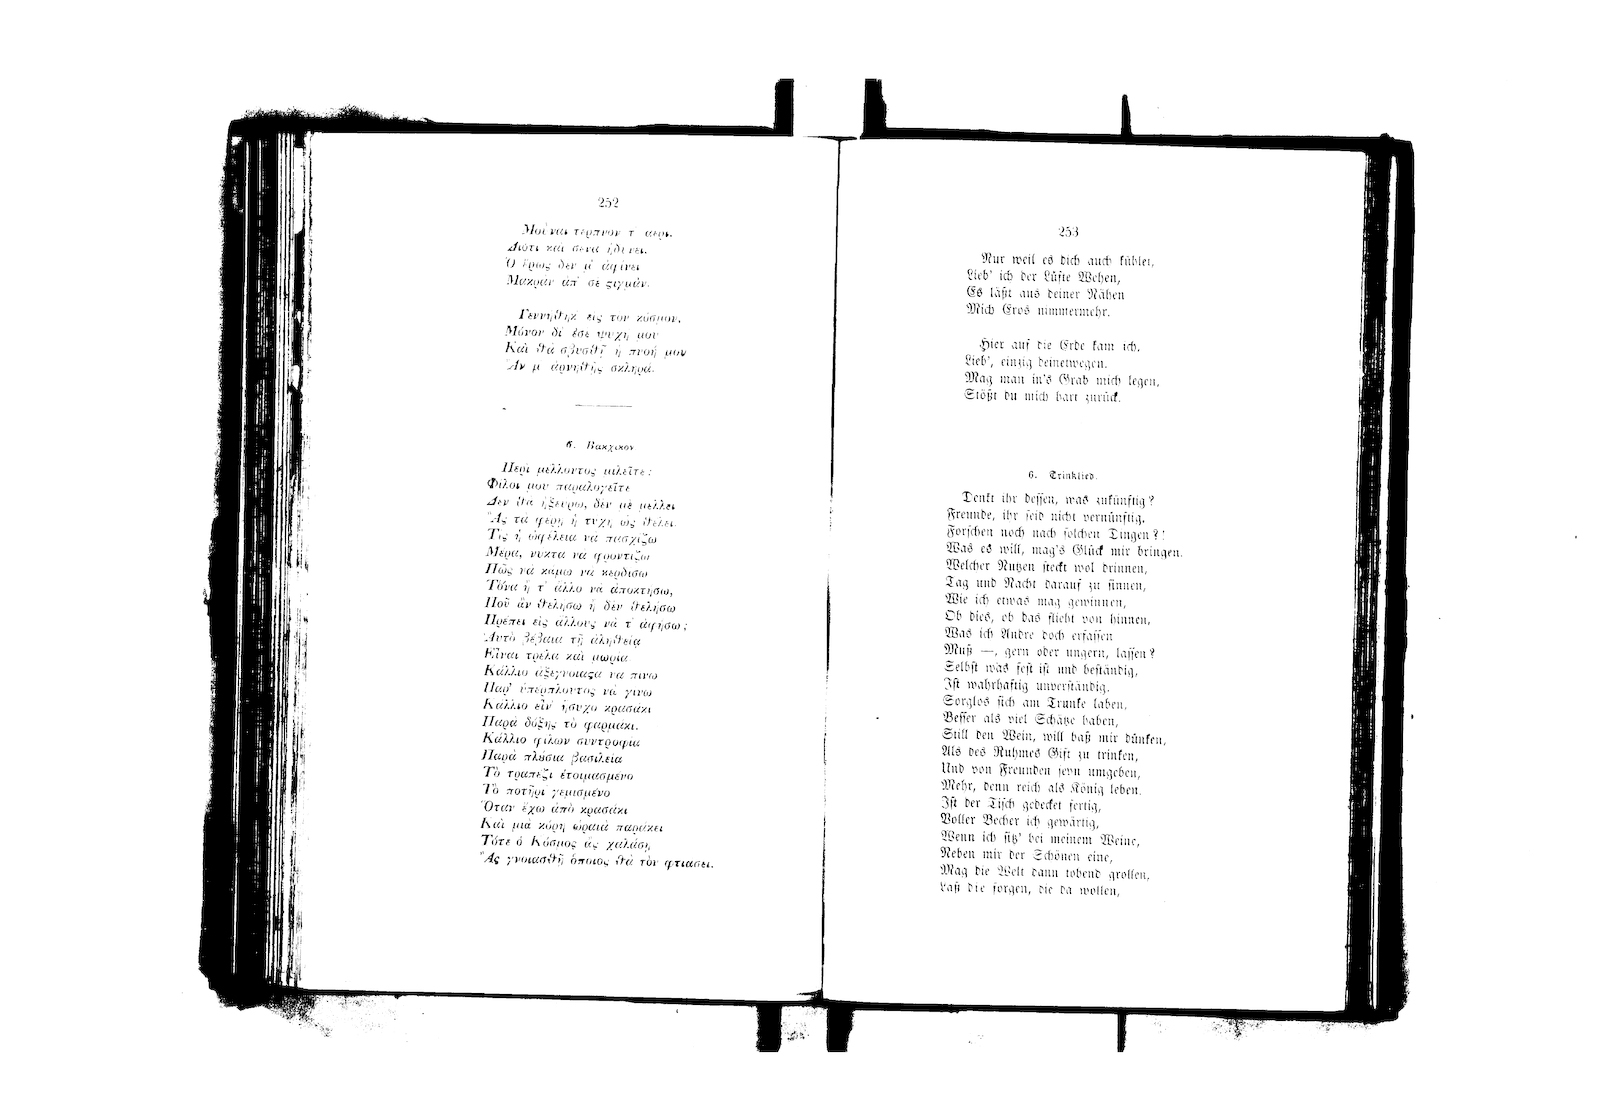 252
Μοὶ ναι τερπνον τ αερι.
Διότι καὶ σενα ἡδύνει.
Ὁ ἔρως δεν μ' ἀφίνει
Μακρὰν ἀπ' σὲ ςιγμάν.
Γεννήθηκ εις τον κόσμον,
Μόνον δι' ἐσε ψυχη μου
Καὶ θὰ σβυσθῇ ἡ πνοή μου
Ἂν μ ἀρνηθῇς σκληρά.
6. Βακχικον
Περι μελλοντος μιλεῖτε;
Φιλοι μου παραλογεῖτε
Δεν θα ἠξευρω, δεν μὲ μελλει
Ἂς τα φερη ἡ τυχη ὡς θελει.
Τις ἡ ὠφελεια νὰ πασχίζω
Μερα, νυκτα να φροντιζω
Πῶς να καμω να κερδισω
Τόνα ἢ τ' ἀλλο νὰ ἀποκτησω,
Ποῦ ἂν θελησω ἢ δὲν θελησω
Πρεπει εἰς ἀλλους νὰ τ' ἀφησω;
Αυτὸ βεβαια τῇ ἀληθεία
Εἶναι τρελα καὶ μωρια
Κάλλιο ἀξεγνοιαςα να πινω
Παρ' ὑπερπλουτος νὰ γινω
Κάλλιο εἰν' ἡσυχο κρασάκι
Παρὰ δόξης τὸ φαρμακι.
Κάλλιο φιλων συντροφια
Παρὰ πλυσια βασιλεια
Τὸ τραπεζι ἑτοιμασμενο
Τὸ ποτῆρι γεμισμένο
Ὅταν ἔχω ἀπὸ κρασάκι
Καὶ μιὰ κόρη ὡραιὰ παράκει
Τότε ὁ Κόσμος ἂς χαλάσῃ
Ἂς γνοιασθῇ ὁποιος θὰ τὸν φτιασει.
253
Nur weil es dich auch kühlet,
Lieb' ich der Lüfte Wehen,
Es läßt aus deiner Nähen
Mich Eros nimmermehr.
Hier auf die Erde kam ich,
Lieb', einzig deinetwegen.
Mag man in's Grab mich legen,
Stößt du mich hart zurück.
6. Trinklied.
Denkt ihr dessen, was zukünftig?
Freunde, ihr seid nicht vernünftig.
Forschen noch nach solchen Dingen?!
Was es will, mag's Glück mir bringen.
Welcher Nutzen steckt wol drinnen,
Tag und Nacht darauf zu sinnen,
Wie ich etwas mag gewinnen,
Ob dies, ob das flieht von hinnen,
Was ich Andre doch erfassen
Muß —, gern oder ungern, lassen?
Selbst was fest ist und beständig,
Ist wahrhaftig unverständig.
Sorglos sich am Trunke laben,
Besser als viel Schätze haben,
Still den Wein, will baß mir dünken,
Als des Ruhmes Gift zu trinken,
Und von Freunden seyn umgeben,
Mehr, denn reich als König leben.
Ist der Tisch gedecket fertig,
Voller Becher ich gewärtig,
Wenn ich sitz' bei meinem Weine,
Neben mir der Schönen eine,
Mag die Welt dann tobend grollen,
Laß die sorgen, die da wollen,